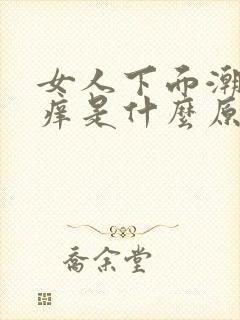 女人下而潮
痒是什麼原
喬余堂